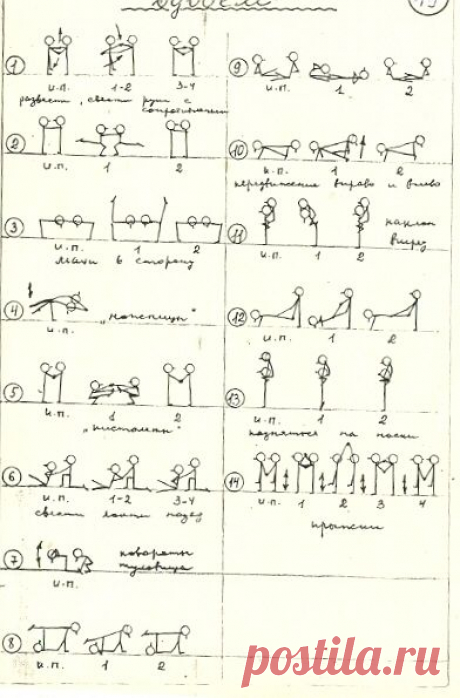 вдвоём
13
1
и.п. 1-2 3-4
развести, свести руки с сопротивлением
2
и.п. 1 2
3
и.п. 1 2
махи в сторону
4
и.п. "ножницы"
5
и.п. 1 2
"пистолеты"
6
и.п. 1-2 3-4
свести локти назад
7
повороты
туловища
и.п.
8
и.п. 1 2
9
и.п. 1 2
10
и.п. 1 2
передвижение вправо и влево
11
наклон
вперёд
и.п. 1 2
12
и.п. 1 2
13
и.п. 1 2
подняться на носки
14
и.п. 1 2 3 4
прыжки
postila.ru